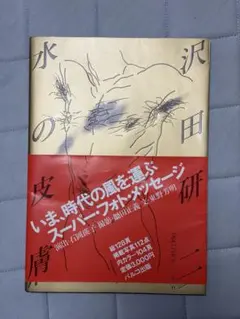 沢田研二
水の皮膚
いま、時代の風を運ぶ
スーパー・フォト・メッセージ
演出・石岡瑛子 撮影・鋤田正義 文・東野芳明
総128頁
掲載写真112点
内カラー104頁
定価3,000円
パルコ出版